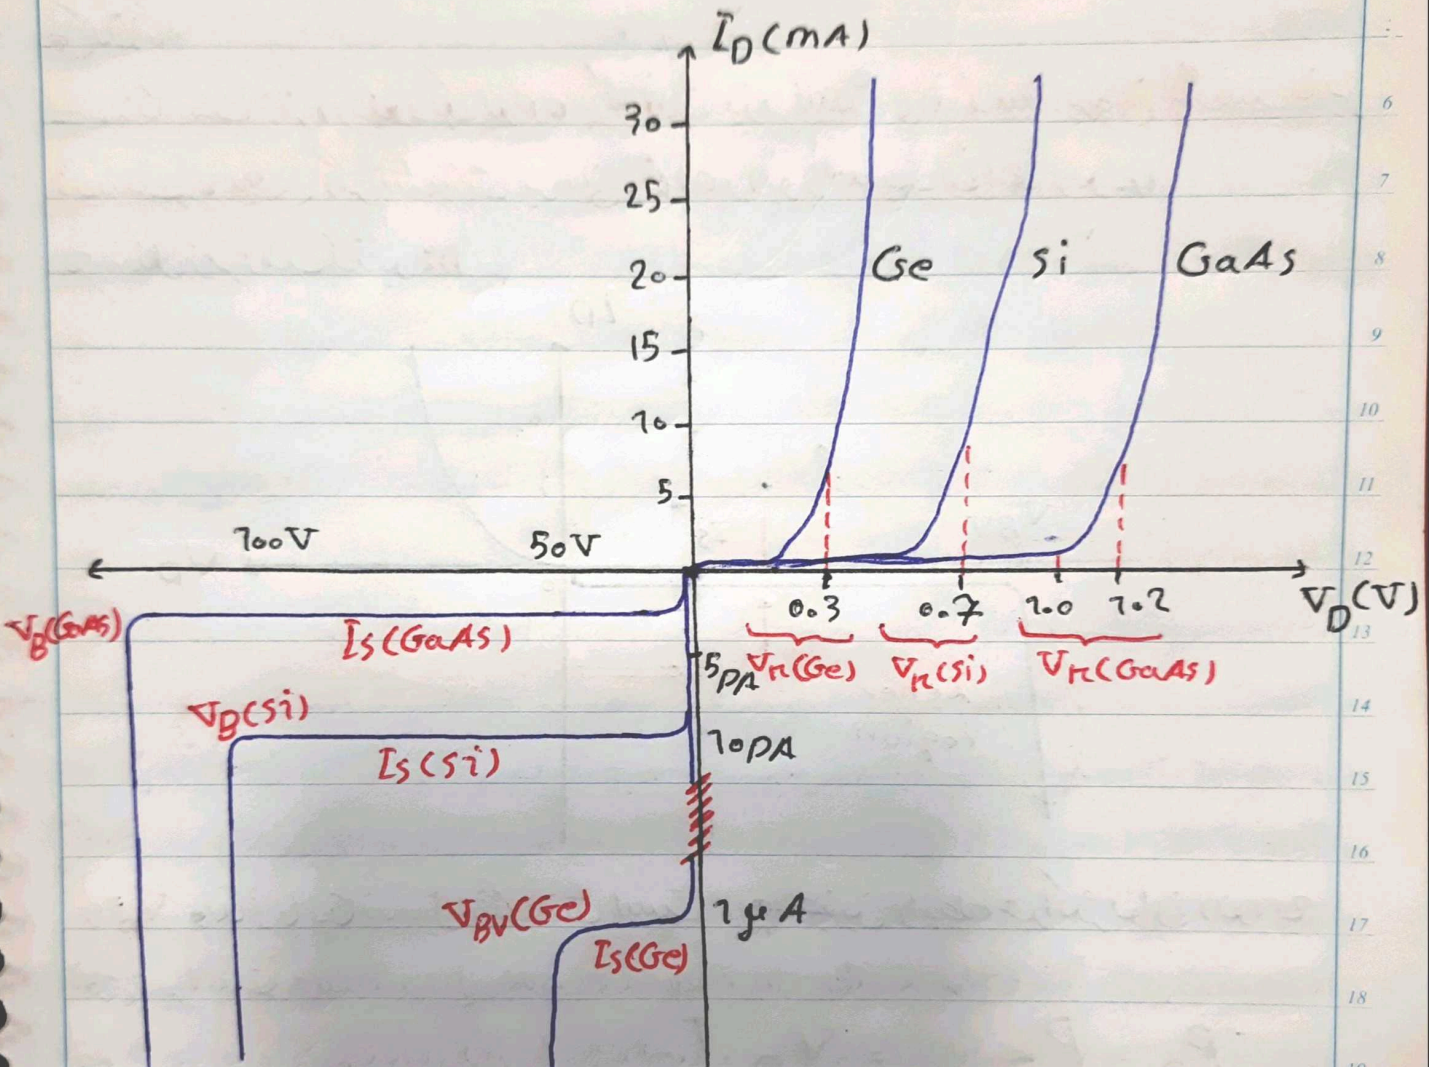 I_D (mA)
30
25
20
15
10
5
Ge
Si
GaAs
100V
50V
0.3
0.7
1.0
1.2
V_D (V)
V_K(Ge)
V_K(Si)
V_K(GaAs)
V_B(GaAs)
Is(GaAs)
5pA
V_B(Si)
Is(Si)
10pA
V_BV(Ge)
1μA
Is(Ge)
6
7
8
9
10
11
12
13
14
15
16
17
18